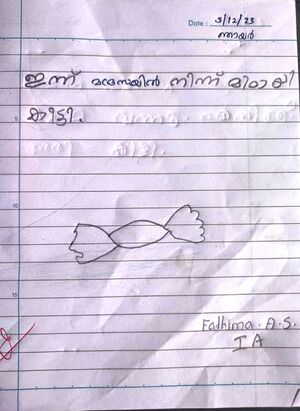 Date : 3/12/23
ഞായർ
ഇന്ന് മദ്രസയിൽ നിന്ന് മിഠായി
കിട്ടി.
5
10
15
Fathima . A . S.
I A